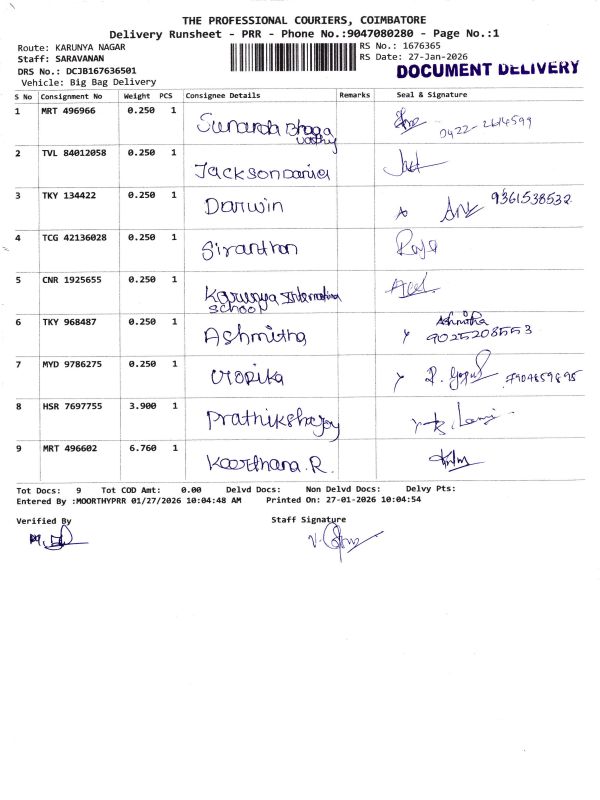 THE PROFESSIONAL COURIERS, COIMBATORE
Delivery Runsheet - PRR - Phone No.:9047080280 - Page No.:1
Route: KARUNYA NAGAR
RS No.: 1676365
Staff: SARAVANAN
RS Date: 27-Jan-2026
DRS No.: DCJB167636501
DOCUMENT DELIVERY
Vehicle: Big Bag Delivery
S No Consignment No Weight PCS Consignee Details Remarks Seal & Signature
1 MRT 496966 0.250 1 Sunanda Bhaga
vathy
0422-2614599
2 TVL 84012058 0.250 1 Jackson Daniel
3 TKY 134422 0.250 1 Darwin 9361538532
4 TCG 42136028 0.250 1 Raja
5 CNR 1925655 0.250 1 Karunya International
School
6 TKY 968487 0.250 1 Ashmitha Ashmitha
9025208553
7 MYD 9786275 0.250 1 7904859895
8 HSR 7697755 3.900 1
9 MRT 496602 6.760 1 Keerthana.R.
Tot Docs: 9 Tot COD Amt: 0.00 Delvd Docs: Non Delvd Docs: Delvy Pts:
Entered By :MOORTHYPRR 01/27/2026 10:04:48 AM Printed On: 27-01-2026 10:04:54
Verified By Staff Signature